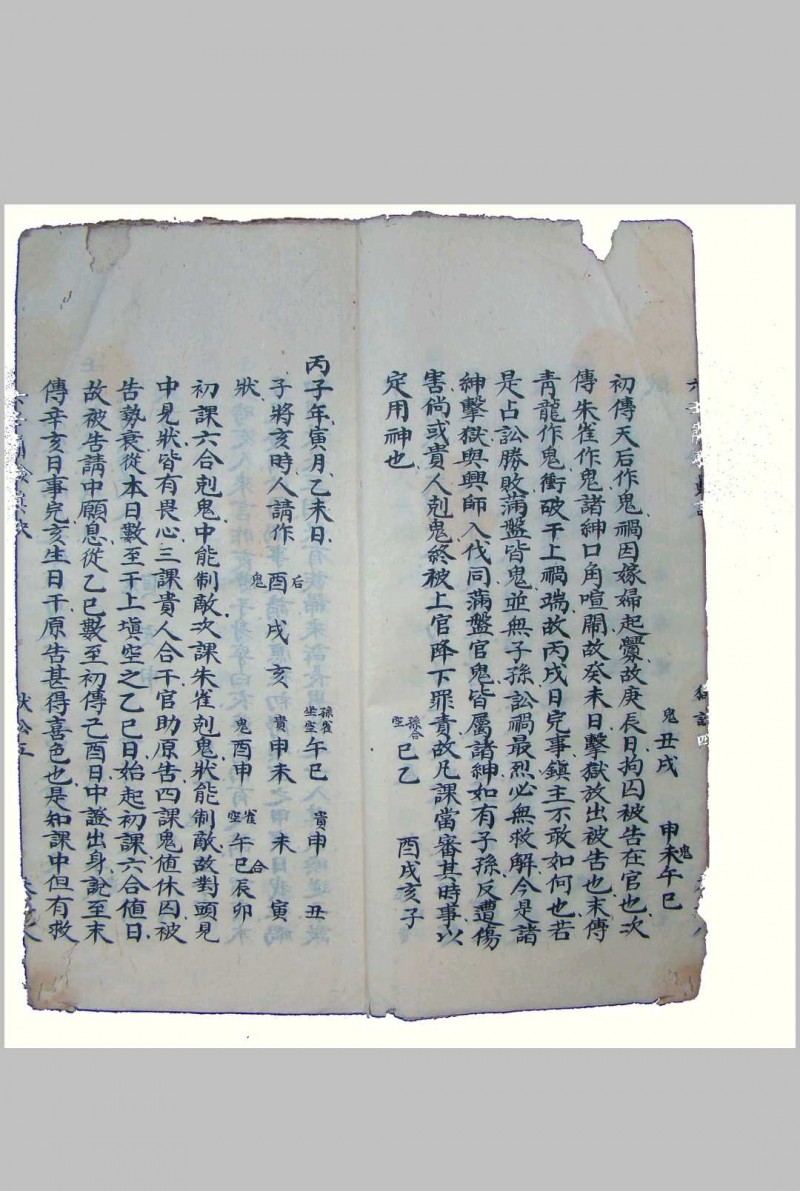 鬼丑戌　申未鬼午巳
初傳天后作鬼禍因嫁婦起釁故庚辰日拘囚被告在官也次
傳朱雀作鬼諸紳口角喧鬧故癸未日擊獄放出被告也末傳
青龍作鬼衝破干上禍端故丙戌日完事鎮主不敢如何也若
是占訟勝敗滿盤皆鬼並無子孫訟禍最烈必無救解今是諸
紳擊獄與興師入代同滿盤官鬼皆屬諸紳如有子孫反遭傷
害倘或貴人剋鬼終被上官降下罪責故凡課當審其時事以
定用神也　孫合空巳乙　酉戌亥子
丙子年寅月乙未日　孫雀坐空午巳　貴申丑
子將亥時人請作　后鬼酉戌亥　貴申未　未寅
狀　鬼酉申　雀空午巳合辰卯
初課六合剋鬼中能制敵次課朱雀剋鬼狀能制敵故對頭見
中見狀皆有畏心三課貴人合干官助原告四課鬼值休囚被
告勢衰從本日數至干上填空之乙巳日始起初課六合值日
故被告請中願息從乙巳數至初傳己酉日中證出身說至末
傳辛亥日事完亥生日干原告甚得喜色也是知課中但有救